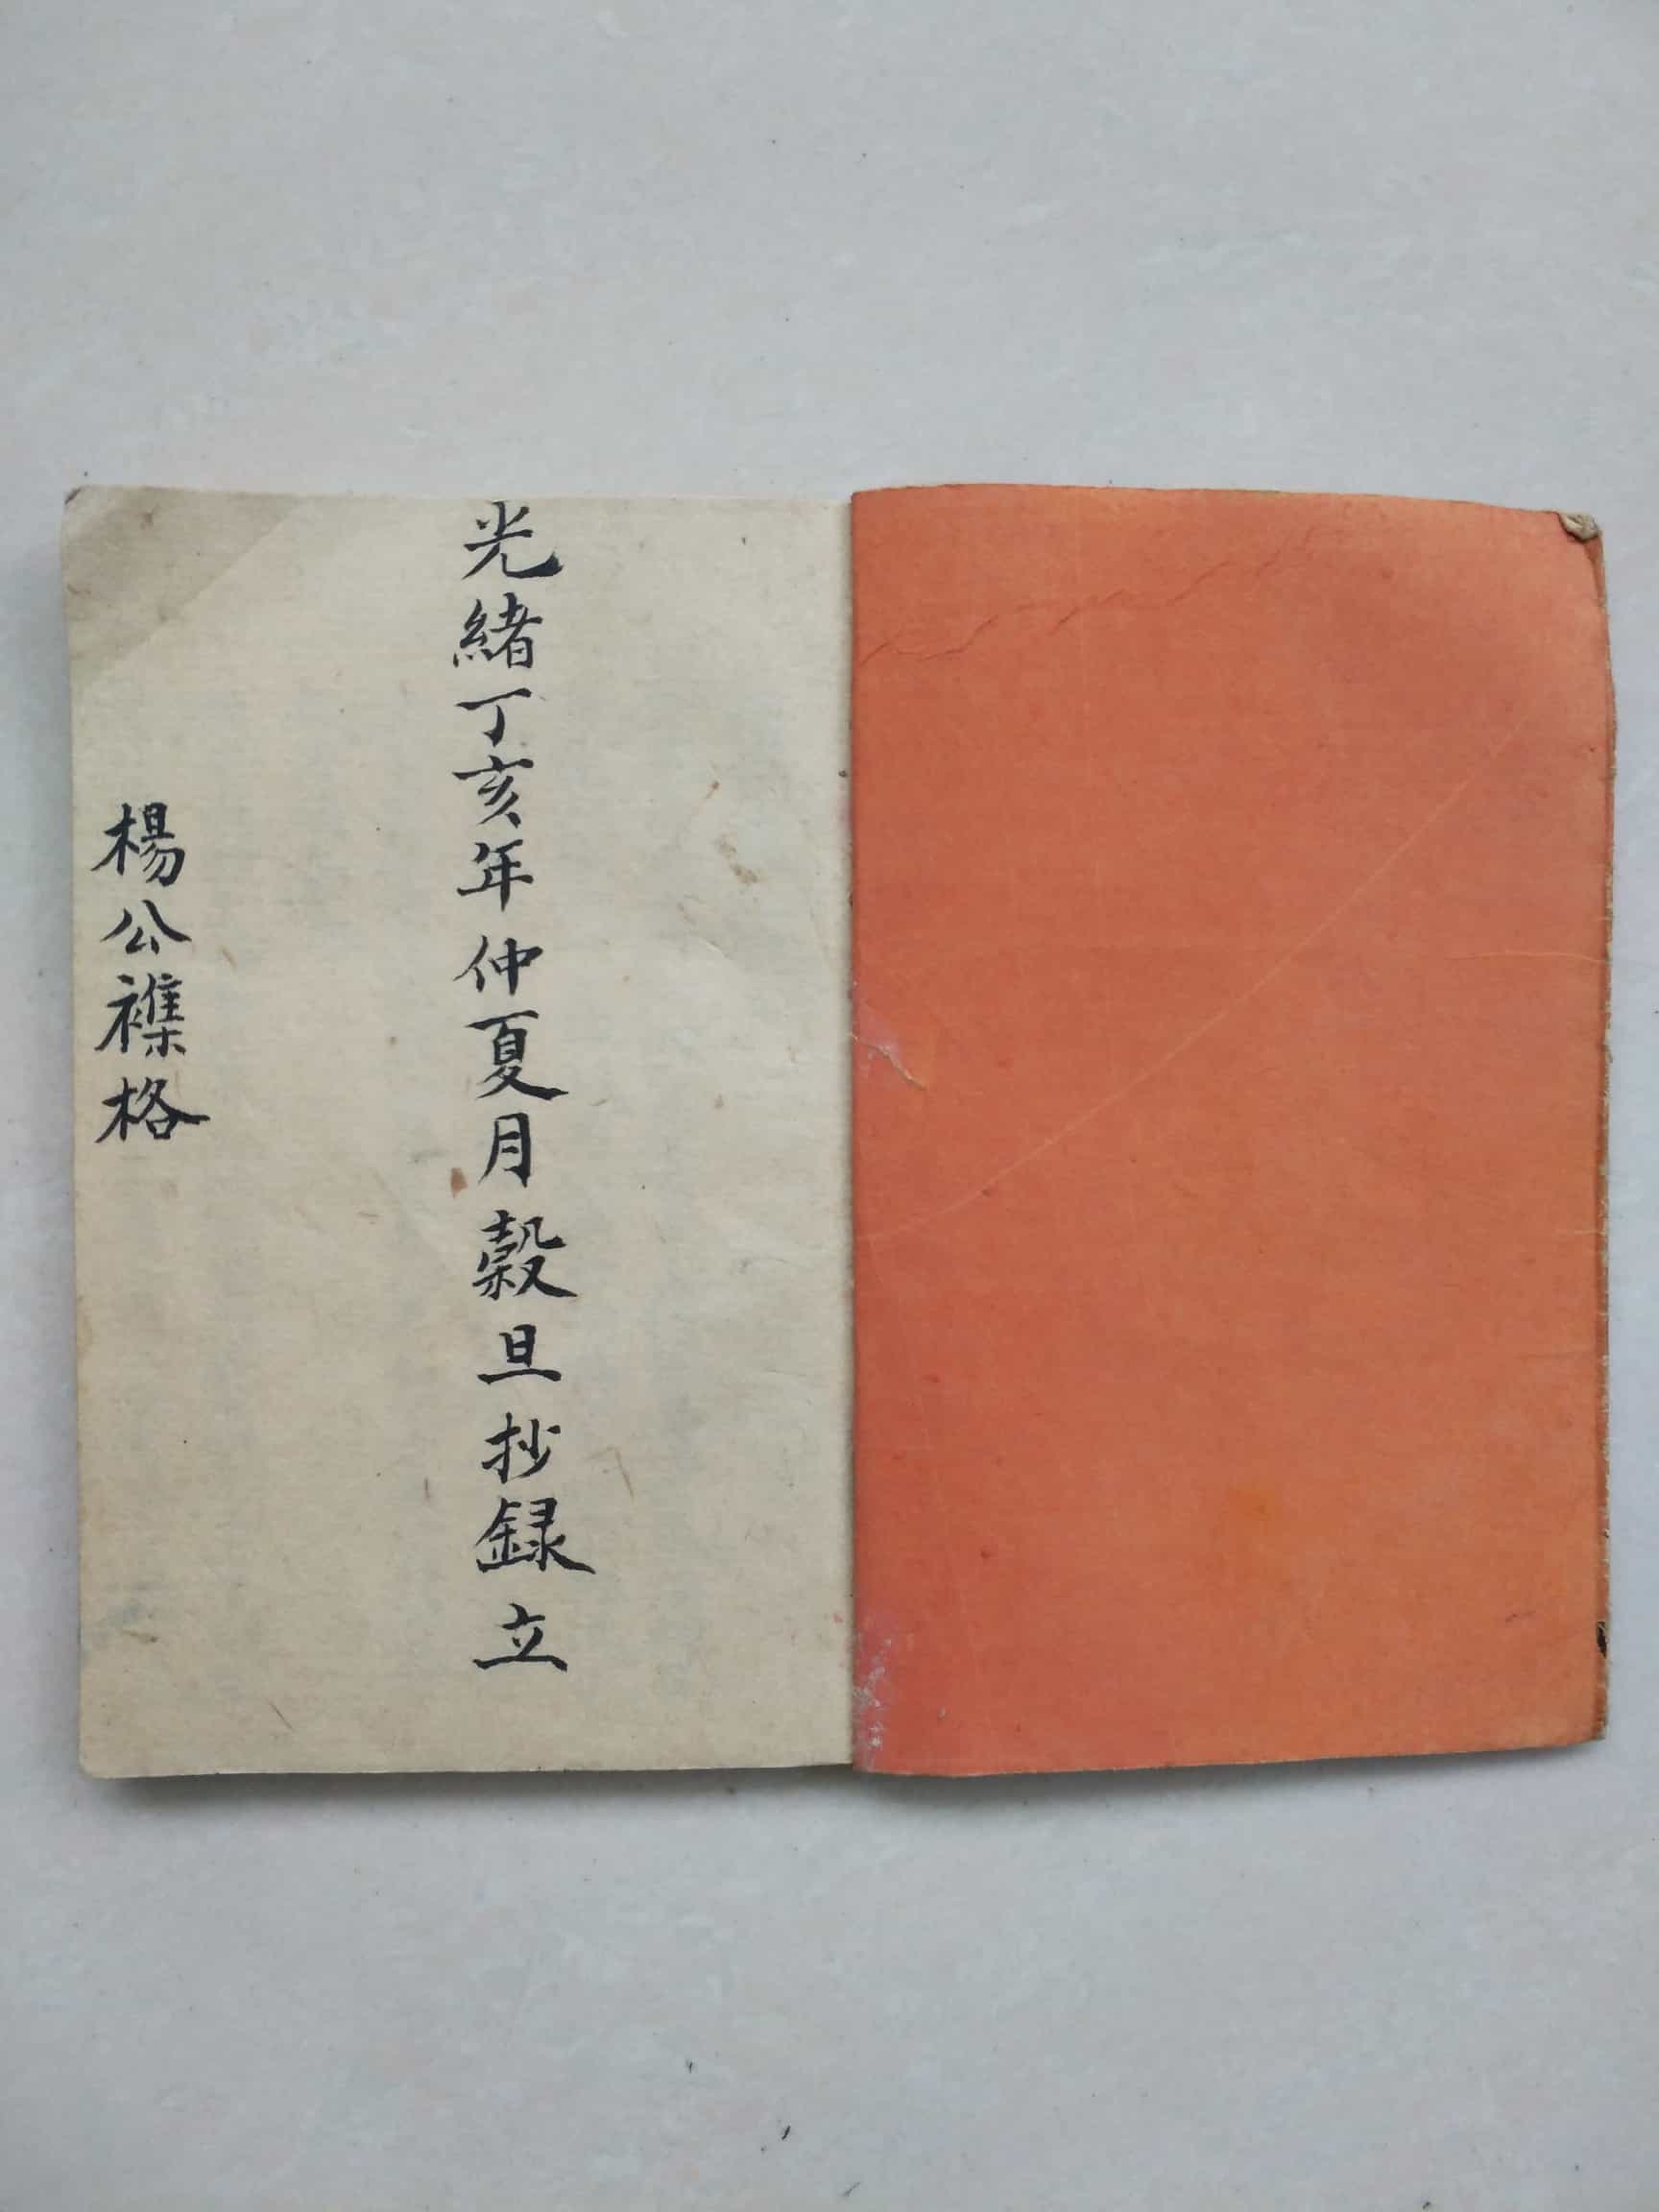 光緒丁亥年仲夏月穀旦抄録立
楊公襍格